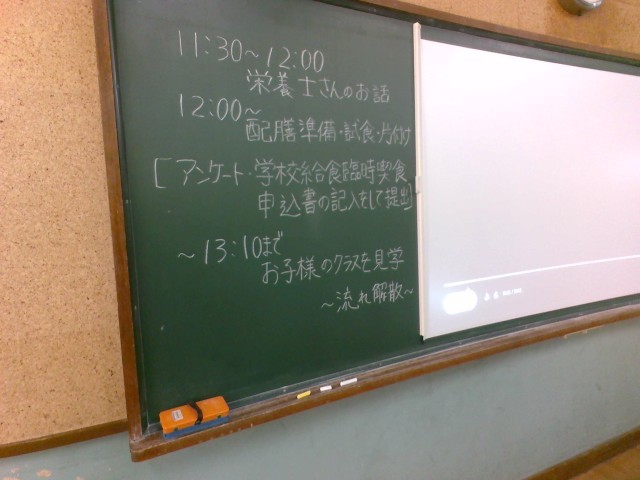 11:30～12:00
栄養士さんのお話
12:00～
配膳準備・試食・片付け
[アンケート・学校給食臨時喫食
申込書の記入をして提出]
～13:10まで
お子様のクラスを見学
～流れ解散～